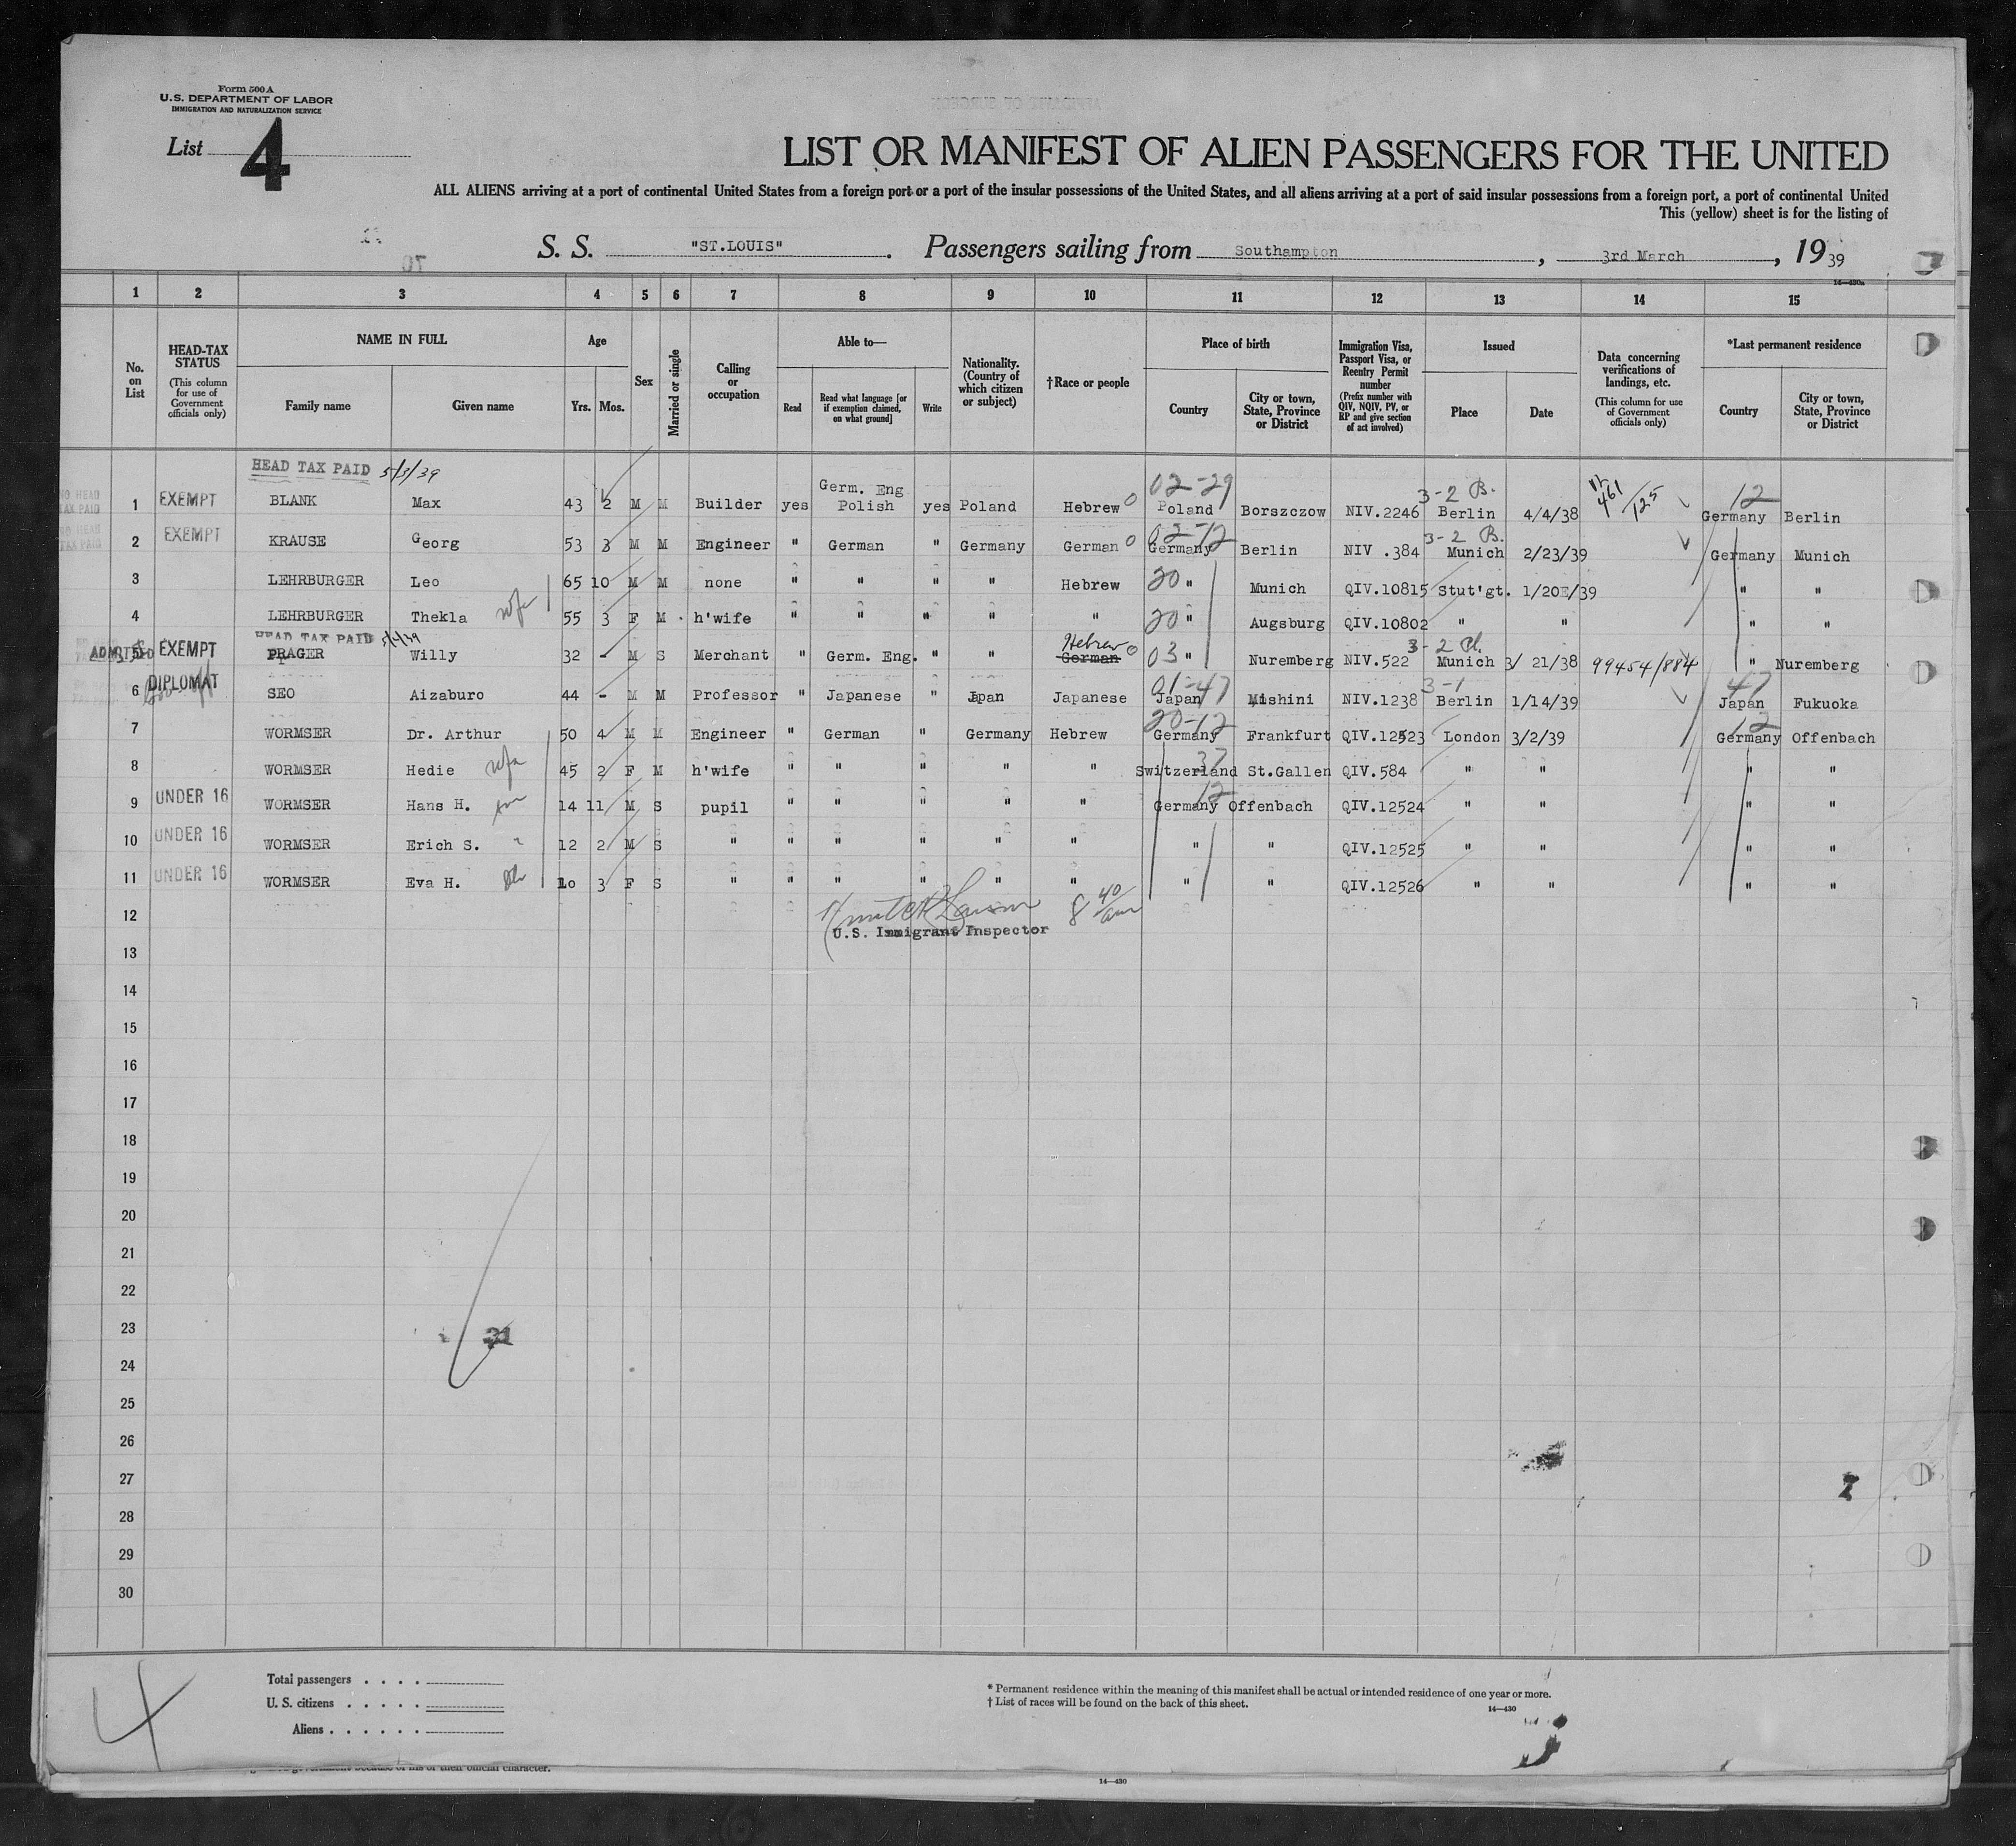 Form 500 A
U.S. DEPARTMENT OF LABOR
IMMIGRATION AND NATURALIZATION SERVICE
List 4
LIST OR MANIFEST OF ALIEN PASSENGERS FOR THE UNITED
ALL ALIENS arriving at a port of continental United States from a foreign port or a port of the insular possessions of the United States, and all aliens arriving at a port of said insular possessions from a foreign port, a port of continental United
This (yellow) sheet is for the listing of
S. S. "ST.LOUIS". Passengers sailing from Southampton, 3rd March, 1939
14—430a
1 2 3 4 5 6 7 8 9 10 11 12 13 14 15
No. on List
HEAD-TAX STATUS (This column for use of Government officials only)
NAME IN FULL
Family name Given name
Age
Yrs. Mos.
Sex
Married or single
Calling or occupation
Able to—
Read
Read what language [or if exemption claimed, on what ground]
Write
Nationality. (Country of which citizen or subject)
†Race or people
Place of birth
Country
City or town, State, Province or District
Immigration Visa, Passport Visa, or Reentry Permit number (Prefix number with QIV, NQIV, PV, or RP and give section of act involved)
Issued
Place Date
Data concerning verifications of landings, etc. (This column for use of Government officials only)
*Last permanent residence
Country
City or town, State, Province or District
HEAD TAX PAID 5/3/39
02-29 3-2 B. 461/125 12
1 EXEMPT BLANK Max 43 2 M M Builder yes Germ. Eng Polish yes Poland Hebrew Poland Borszczow NIV.2246 Berlin 4/4/38 Germany Berlin
02-12 3-2 B.
2 EXEMPT KRAUSE Georg 53 3 M M Engineer " German " Germany German Germany Berlin NIV .384 Munich 2/23/39 Germany Munich
3 LEHRBURGER Leo 65 10 M M none " " " " Hebrew 20 " Munich QIV.10815 Stut'gt. 1/20/39 " "
4 LEHRBURGER Thekla wfe 55 3 F M h'wife " " " " " 20 " Augsburg QIV.10802 " " " "
HEAD TAX PAID 5/4/39
Hebrew 3-2
5 ADMITTED EXEMPT PRAGER Willy 32 - M S Merchant " Germ. Eng. " " German 03 " Nuremberg NIV.522 Munich 3/ 21/38 99454/884 " Nuremberg
01-47 3-1 47
6 DIPLOMAT SEO Aizaburo 44 - M M Professor " Japanese " Japan Japanese Japan Mishini NIV.1238 Berlin 1/14/39 Japan Fukuoka
20-12 12
7 WORMSER Dr. Arthur 50 4 M M Engineer " German " Germany Hebrew Germany Frankfurt QIV.12523 London 3/2/39 Germany Offenbach
37
8 WORMSER Hedie wfe 45 2 F M h'wife " " " " " Switzerland St.Gallen QIV.584 " " " "
12
9 UNDER 16 WORMSER Hans H. son 14 11 M S pupil " " " " " Germany Offenbach QIV.12524 " " " "
10 UNDER 16 WORMSER Erich S. " 12 2 M S " " " " " " " " QIV.12525 " " " "
11 UNDER 16 WORMSER Eva H. 10 3 F S " " " " " " " " QIV.12526 " " " "
8 40/am
12
U.S. Immigrant Inspector
13
14
15
16
17
18
19
20
21
22
23
31
24
25
26
27
28
29
30
4
Total passengers
U. S. citizens
Aliens
* Permanent residence within the meaning of this manifest shall be actual or intended residence of one year or more.
† List of races will be found on the back of this sheet.
14—430
because of his or their official character.
14—430